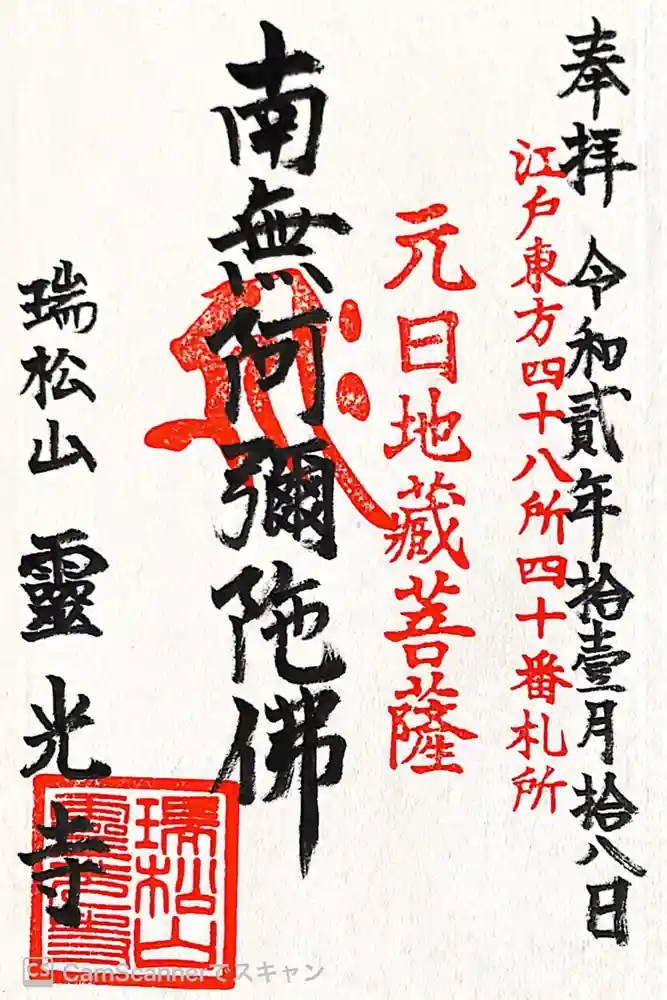 奉拝 令和貳年拾壹月拾八日
江戸東方四十八所四十番札所
元日地藏菩薩
南無阿彌陀佛
瑞松山 靈光寺
瑞松山
靈光寺
CS CamScannerでスキャン